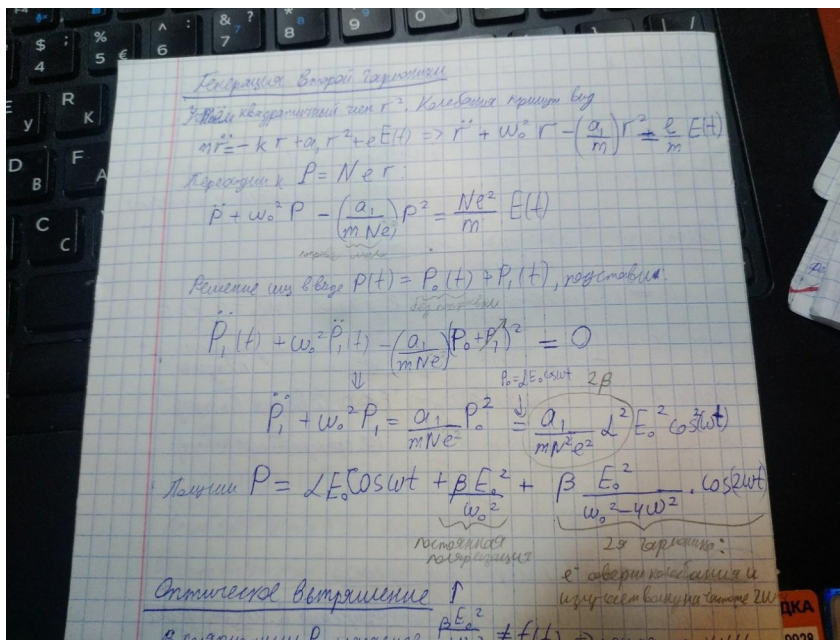 Генерация Второй гармоники
квадратичный член r². Колебания примут вид
m r̈ = - k r + a₁ r² + e E(t) => r̈ + ω₀² r - (a₁/m) r² = e/m E(t)
Переходим к P = N e r:
P̈ + ω₀² P - (a₁/(m N e)) P² = Ne²/m E(t)
Решение ищ в виде P(t) = P₀(t) + P₁(t), подставим:
P̈₁(t) + ω₀² P̈₁(t) - (a₁/(m N e)) (P₀ + P₁)² = 0
⇓ P₀ = αE₀cosωt 2β
P̈₁ + ω₀² P₁ = a₁/(m N e²) P₀² = a₁/(m N² e²) α² E₀² cos²(ωt)
Получим P = αE₀ cosωt + βE₀²/ω₀² + β E₀²/(ω₀² - 4ω²) · cos(2ωt)
постоянная поляризация
2я гармоника:
e⁻ соверш колебания и
излучает волну на частоте 2ω
Оптическое выпрямление ↑
βE₀² ≠ f(t) ⇒
ДКА
0028
$ 4 ; % 5 € : ^ 6 & 7 ? 8
E У R К D В F А C С